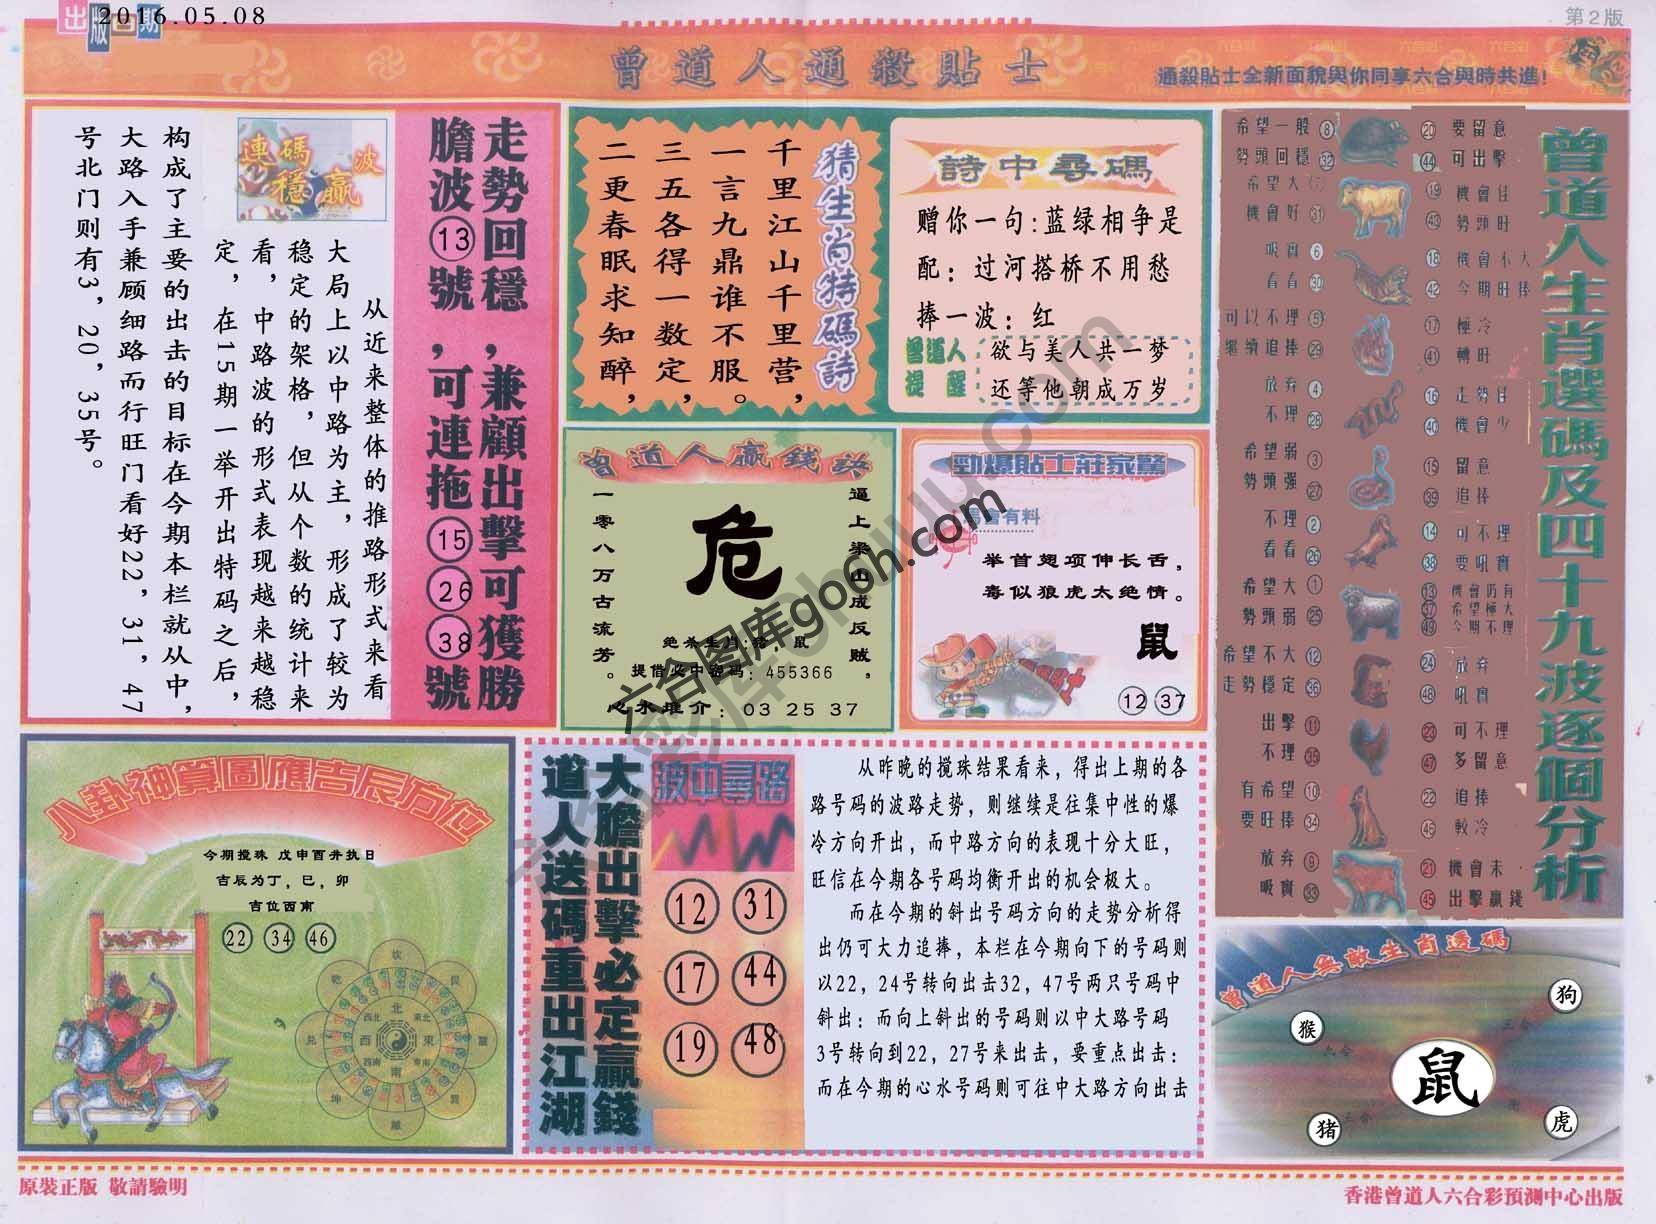 出版日期
2016.05.08
第2版
曾道人通殺貼士
通殺貼士全新面貌與你同享六合與時共進!
走勢回穩,兼顧出擊可獲勝
膽波⑬號,可連拖⑮㉖㊳號
連碼穩贏波
从近来整体的推路形式来看
大局上以中路为主,形成了较为
稳定的架格,但从个数的统计来
看,中路波的形式表现越来越稳
定,在15期一举开出特码之后,
构成了主要的出击的目标在今期本栏就从中,
大路入手兼顾细路而行旺门看好22,31,47
号北门则有3,20,35号。
猜生肖特碼詩
千里江山千里营,
一言九鼎谁不服。
三五各得一数定,
二更春眠求知醉,
詩中尋碼
赠你一句:蓝绿相争是
配:过河搭桥不用愁
捧一波:红
曾道人提醒
欲与美人共一梦
还等他朝成万岁
曾道人贏錢訣
逼上梁山成反贼,
危
一零八万古流芳。
绝杀生肖:猪,鼠
提借必中密码:455366
心水推介:03 25 37
勁爆貼士莊家驚
举首翘项伸长舌,
毒似狼虎太绝情。
鼠
12 37
曾道人生肖選碼及四十九波逐個分析
希望一般 8
勢頭回穩 32
20 要留意
44 可出擊
希望大 7
機會好 31
19 機會佳
43 勢頭旺
吸實 6
看看 30
18 機會不大
42 今期旺捧
可以不理 5
繼續追捧 29
17 極冷
41 轉旺
放弃 4
不理 28
16 走勢佳
40 機會少
希望弱 3
勢頭强 27
15 留意
39 追捧
不理 2
看看 26
14 可不理
38 要吼實
希望大 1
勢頭弱 25
13 機會仍有
37 希望極大
49 今期不理
希望不大 12
走勢穩定 36
24 放弃
48 吼實
出擊 11
不理 35
23 可不理
47 多留意
有希望 10
要旺捧 34
22 追捧
46 較冷
放弃 9
吸實 33
21 機會未
45 出擊贏錢
八卦神算圖應吉辰方位
今期搅珠 戊申酉并执日
吉辰为丁,巳,卯
吉位西南
22 34 46
大膽出擊必定贏錢
道人送碼重出江湖
波中尋路
12 31
17 44
19 48
从昨晚的搅珠结果看来,得出上期的各
路号码的波路走势,则继续是往集中性的爆
冷方向开出,而中路方向的表现十分大旺,
旺信在今期各号码均衡开出的机会极大。
而在今期的斜出号码方向的走势分析得
出仍可大力追捧,本栏在今期向下的号码则
以22,24号转向出击32,47号两只号码中
斜出:而向上斜出的号码则以中大路号码
3号转向到22,27号来出击,要重点出击:
而在今期的心水号码则可往中大路方向出击
曾道人無敵生肖透碼
狗
猴
鼠
猪
虎
原裝正版 敬請驗明
香港曾道人六合彩預測中心出版
六合图库gooh.com